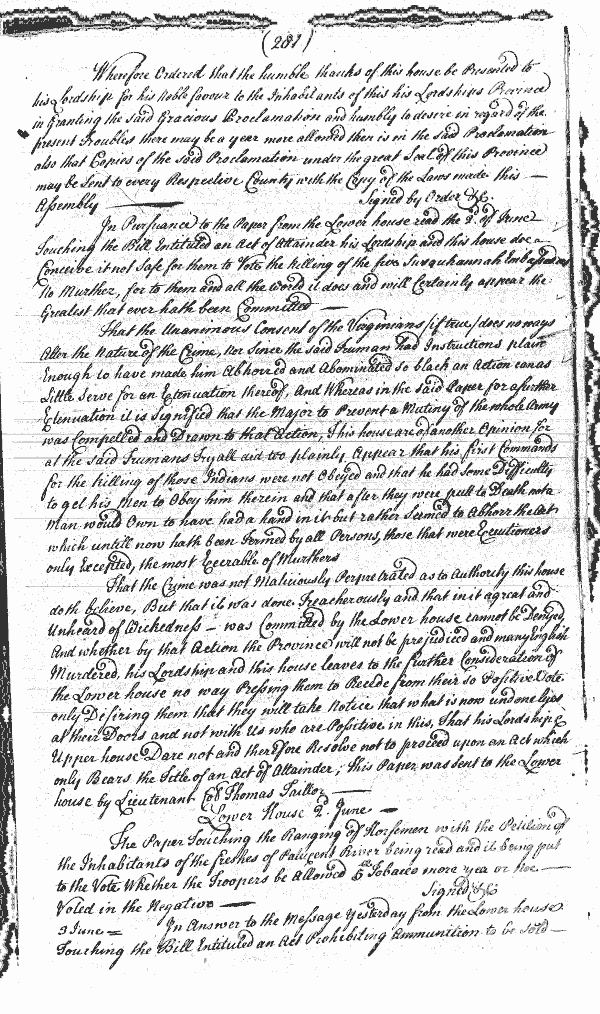 (281)
Wherefore Ordered that the humble thanks of this house be Presented to
his Lordship for his Noble favour to the Inhabitants of this his Lordships Province
in Granting the said Gracious Proclamation and humbly to desire in regard of the
present Troubles there may be a year more allowed then is in the said Proclamation
also that Copies of the Said Proclamation under the great Seal of this Province
may be Sent to every Respective County with the Copy of the Laws made this —
Assembly — Signed by Order &c.
In Pursuance to the Paper from the Lower house read the 2d. of June
Touching the Bill Entituled an Act of Attainder his Lordship and this house doe
Conceive it not Safe for them to Vote the killing of the five Susquehannah Embassadors
No Murther, for to them and all the World it does and will Certainly appear the
Greatest that ever hath been Committed —
That the Unanimous Consent of the Virginians / if true / does no ways
Alter the Nature of the Crime, Nor Since the said Truman had Instructions plain
Enough to have made him Abhorred and Abominated so black an Action can as
Little Serve for an Extenuation thereof, And Whereas in the said Paper for a further
Extenuation it is Signified that the Major to Prevent a Mutiny of the whole Army
was Compelled and Drawn to that Action, This house are of another Opinion for
at the said Trumans Tryall did too plainly Appear that his first Commands
for the killing of those Indians were not Obeyed and that he had some Difficulty
to get his Men to Obey him therein and that after they were putt to Death not a
Man would Own to have had a hand in it but rather Seemed to Abhorr the act
which untill now hath been Termed by all Persons, those that were Executioners
only Excepted, the most Execrable of Murthers
That the Crime was not Maliciously Perpetrated as to Authority this house
doth believe, But that it was done Treacherously and that in it a great and
Unheard of Wickedness — was Committed by the Lower house cannot be Denyed
And whether by that Action the Province will not be prejudiced and many English
Murdered, his Lordship and this house leaves to the further Consideration of
the Lower house no way Pressing them to Recede from their so Positive Vote
only Desiring them that they will take Notice that what is now undone lyes
at their Doors and not with Us who are Positive in this, That his Lordship &
Upper house Dare not and therefore Resolve not to proceed upon an Act which
only Bears the Title of an Act of Attainder; this Paper was sent to the Lower
house by Lieutenant Col Thomas Taillor —
Lower House 2d. June —
The Paper Touching the Ranging of Horsemen with the Petition of
the Inhabitants of the freshes of Patuxent River being read and it being put
to the Vote Whether the Troopers be Allowed Tobacco more per year or Noe —
Signed &c
Voted in the Negative —
3 June = In Answer to the Message Yesterday from the Lower house
Touching the Bill Entituled an Act Prohibiting Ammunition to be sold —